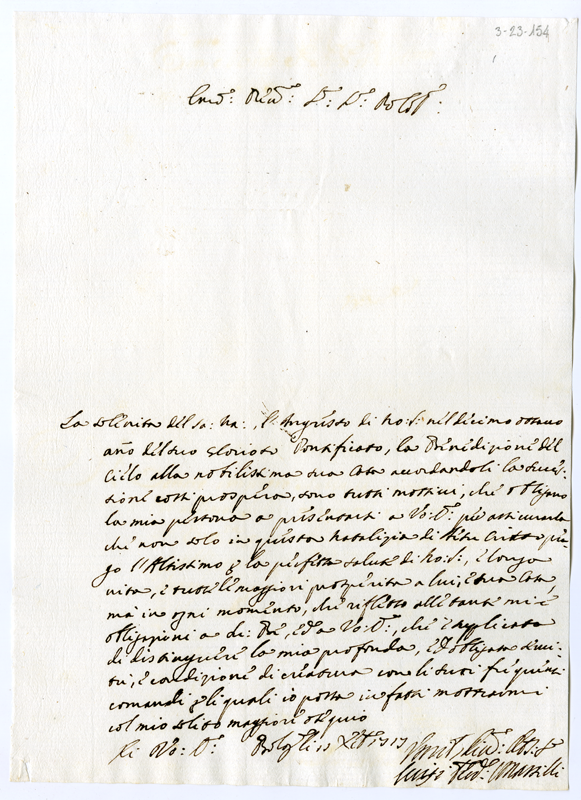 3-23-154
La solenita del sa: Na: , l'Ingresso di No: S: nel decimo ottavo
año del suo Glorioso Pontificato, la Benedizione del
Cielo alla nobilissima sua Casa accordandoli la succes-
sione cosi prospera, sono tutti mottivi, che obligano
la mia persona a presentarsi a Vo: per assicurarla
che non solo in questa natalizia di pre-
go l'Altissimo per la perfetta salute di No: S: , e longa
vita, e tutte le maggiori prosperita a lui, e sua Casa,
mà in ogni momento, che rifletto alle tante mie
obligazioni a ed a Vo: che è applicata
di distinguere la mia profonda, ed obligata servi-
tù, e condizione di creatura con li suoi frequenti
comandi per li quali io possa in fatti mostrarmi
col mio solito maggiore ossequio
Di Vo:
Luigi Marsilli